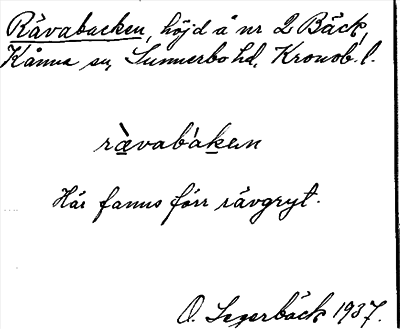 Rävabacken, höjd å nr 2 Bäck,
Kånna sn, Sunnerbo hd, Kronob. l.
ràvabáken
Här fanns förr rävgryt.
O. Segerbäck 1937.